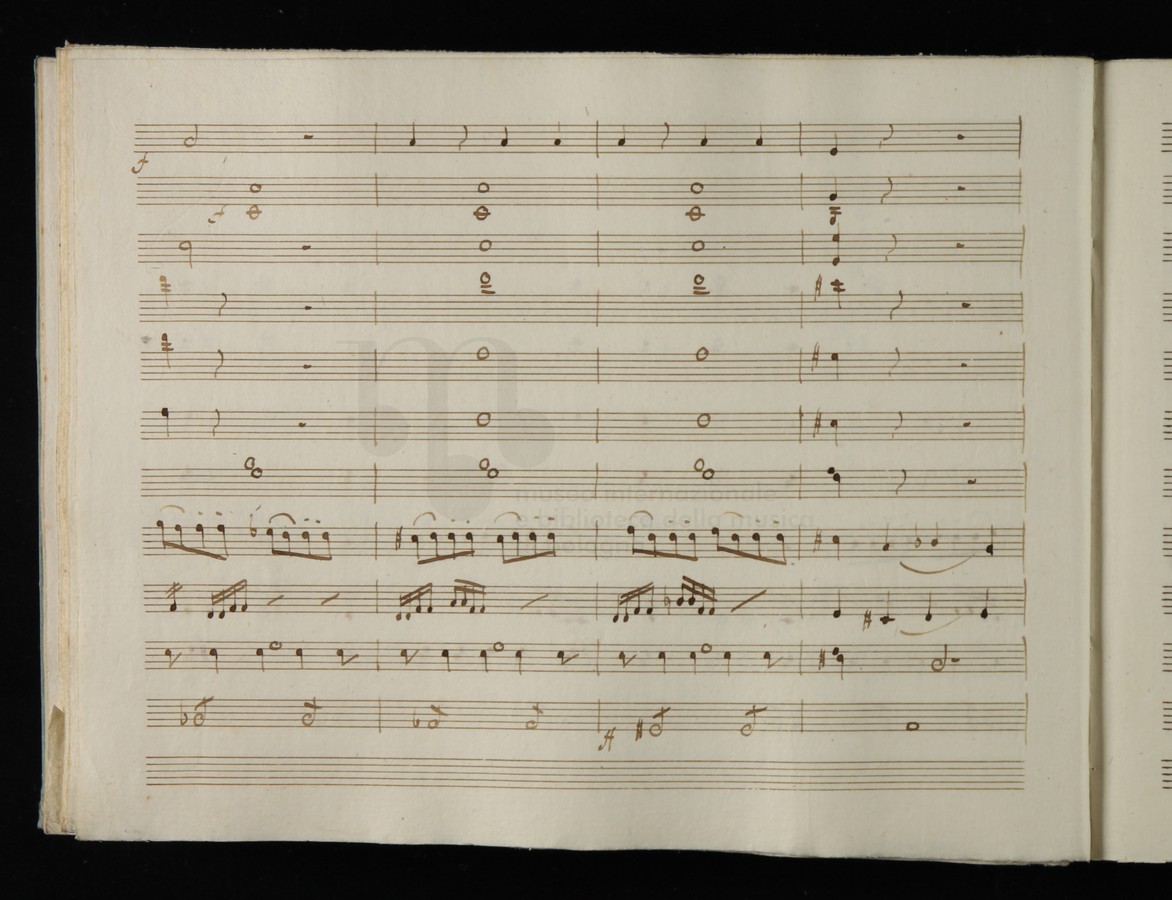 f
f
museo internazionale
e biblioteca della musica
ff